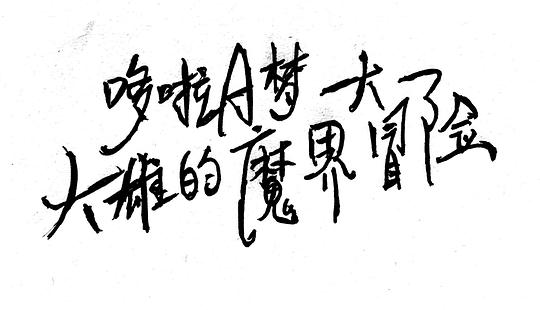 哆啦A梦
大雄的魔界大冒险